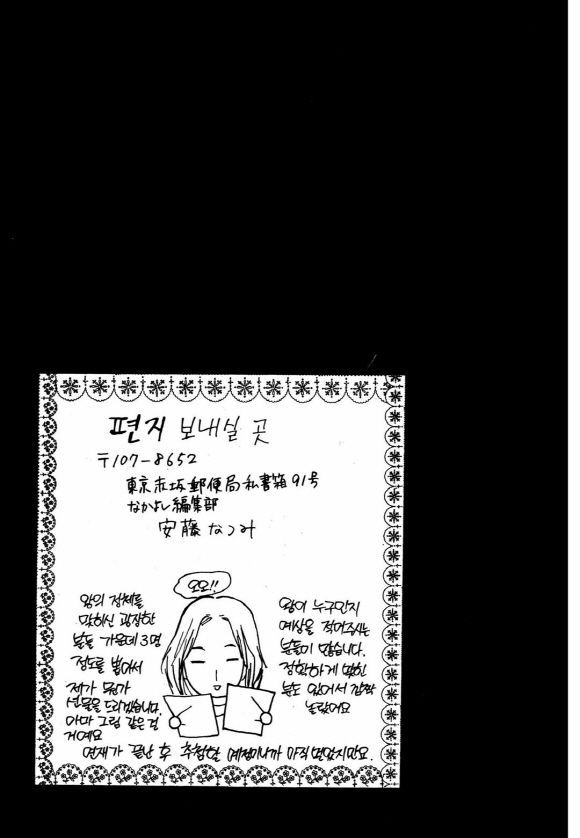 편지 보내실 곳
〒107-8652
東京赤坂郵便局私書箱91号
なかよし編集部
安藤なつみ
오오!!
왕이 누구인지
예상을 적어주시는
분들이 많습니다.
정확하게 맞힌
분도 있어서 깜짝
놀랐어요
왕의 정체를
맞히신 굉장한
분들 가운데 3명
정도를 뽑아서
제가 뭔가
선물을 드리겠습니다.
아마 그림 같은 걸
거예요
연재가 끝난 후 추첨할 예정이니까 아직 멀었지만요.